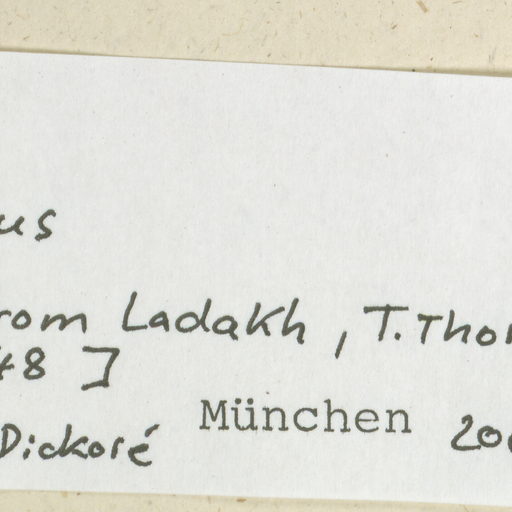 us
rom Ladakh, T. Thom
48 ]
Dickoré München 200